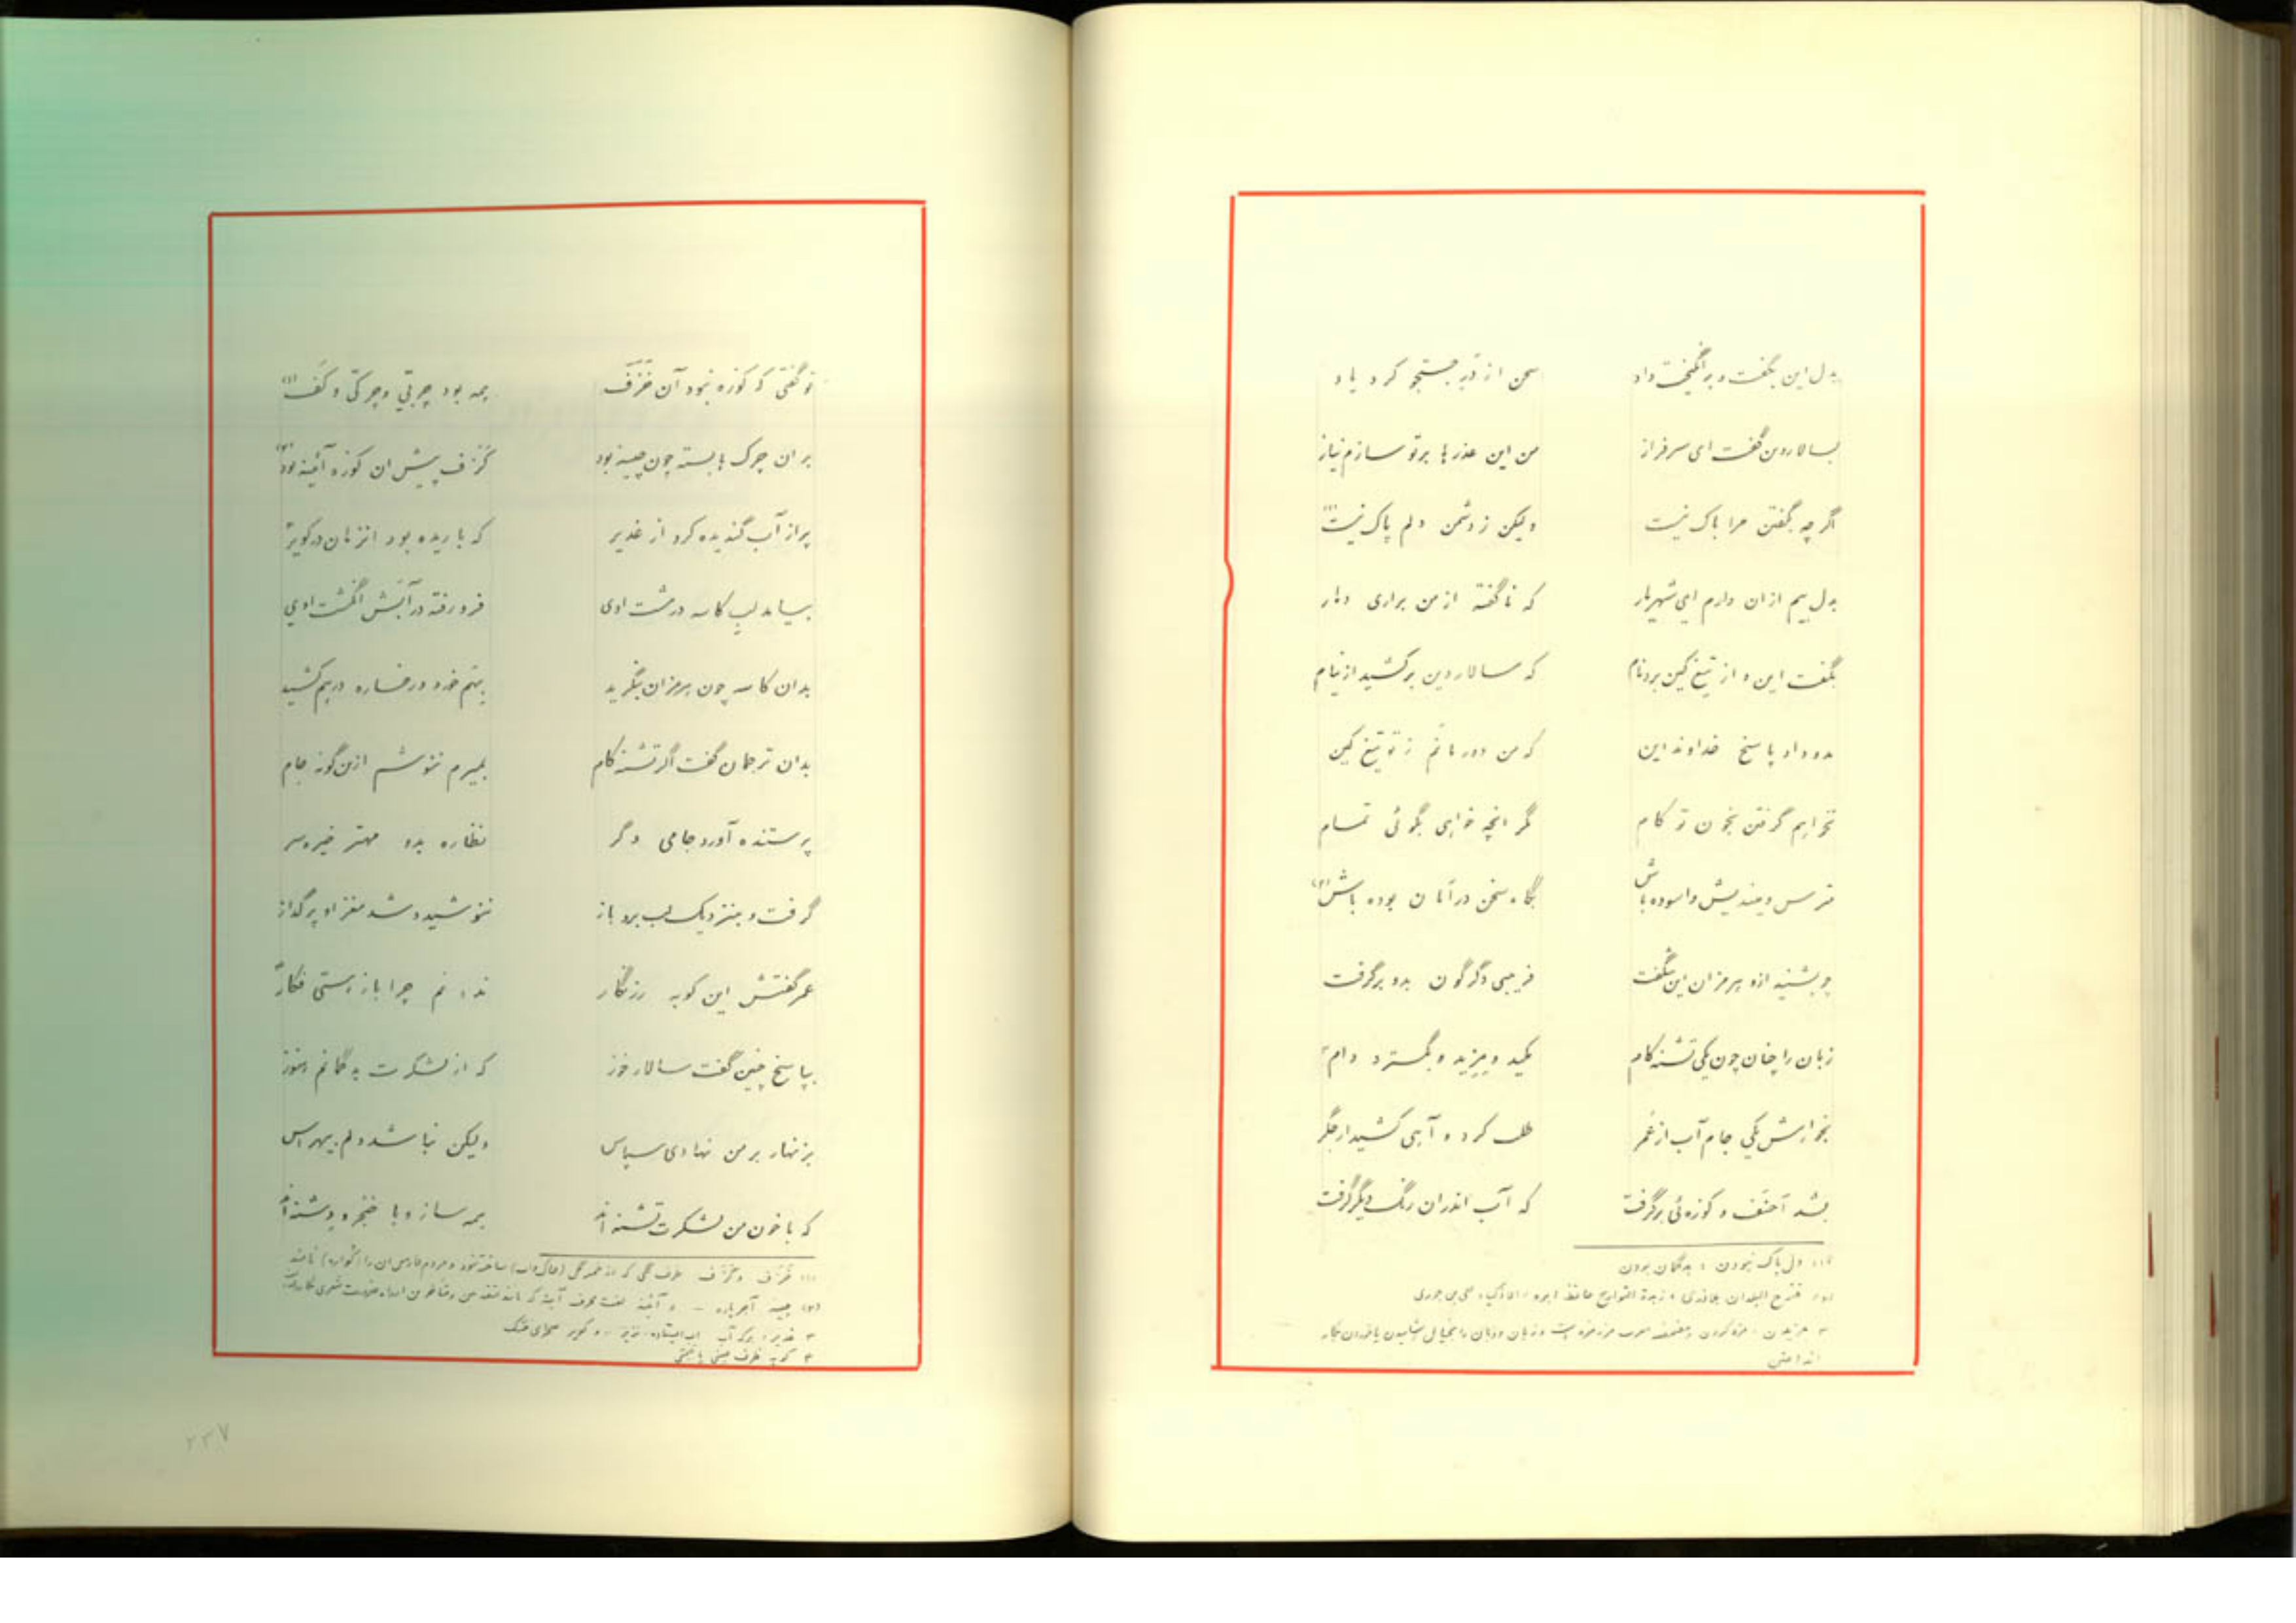 بدل این بگفت و برانگیخت داد سخن از در جستجو کرد یاد
بسالار دین گفت ای سرفراز من این عذرها بر تو سازم نیاز
اگر چه بگفتن مرا باک نیست ولیکن ز دشمن دلم پاک نیست (۱)
بدل بیم ازان دارم ای شهریار که ناگفته از من براری دمار
بگفت این و از تیغ کین برد نام که سالار دین برکشید از نیام
بدو داد پاسخ خداوند این که من دور مانم ز تو تیغ کین
نخواهم گرفتن بخون تو کام مگر انچه خواهی بگوئی تمام
مترس و میندیش و اسوده باش بگاه سخن در امان بوده باش (۲)
چو بشنید ازو هرمزان این شگفت فریبی دگرگون بدو برگرفت
زبان را چنان چون یکی تشنه کام مکید و مزید و بگسترد دام ۳
بخواهش یکی جام آب از عمر طلب کرد و آهی کشید از جگر
بشد احنف و کوزه‌ئی برگرفت که آب اندران رنگ دیگر گرفت
(۱) دل پاک نبودن : بدگمان بودن
(۲) فتوح البلدان بلاذری ، زبدة التواریخ حافظ ابرو
۳ مزیدن ، مزه کردن
انداختن
تو گفتی که کوزه نبود آن خزف همه بود چربی و چرک و کف (۱)
بر ان چرک ها بسته چون چینه بود گزف پیش ان کوزه آئینه بود (۲)
پر از آب گندیده کرد از غدیر که باریده بود انزمان در کویر ۳
بیامد لب کاسه در مشت اوی فرو رفته در آبش انگشت اوی
بدان کاسه چون هرمزان بنگرید بهم خورد و رخساره درهم کشید
بدان ترجمان گفت اگر تشنه کام بمیرم ننوشم ازین گونه جام
پرستنده آورد جامی دگر نظاره بدو مهتر خیره سر
گرفت و بنزدیک لب برد باز ننوشید و شد مغز او پر گداز
عمر گفتش این کوبه زرنگار ندانم چرا باز هستی فکار ۴
بپاسخ چنین گفت سالار خوز که از لشکرت بدگمانم هنوز
بزنهار بر من نهادی سپاس ولیکن نباشد دلم بیهراس
که با خون من لشکرت تشنه اند همه ساز و با خنجر و دشنه اند
(۲) چینه آجرپاره
۳ غدیر : برکه آب و کویر صحرای خشک
۴ کوبه ظرف چینی
۲۳۷